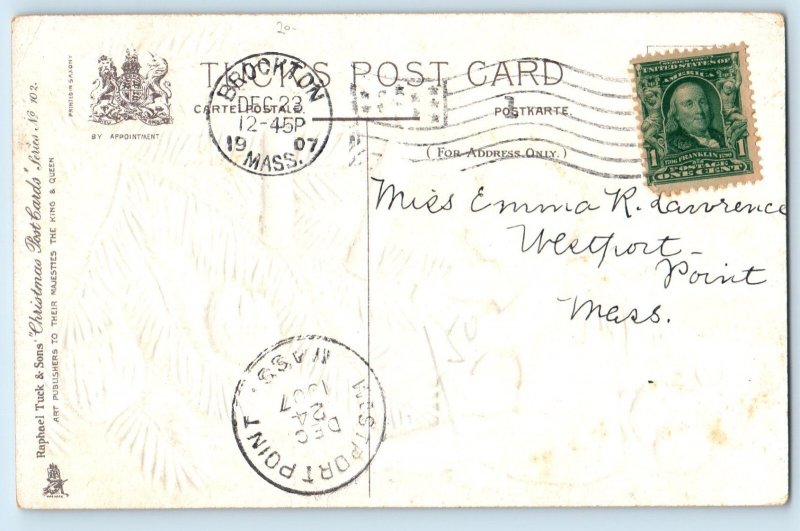 20-
TUCK'S POST CARD
CARTE POSTALE
POSTKARTE.
(FOR ADDRESS ONLY.)
PRINTED IN SAXONY
BY APPOINTMENT
Raphael Tuck & Sons' "Christmas Post Cards" Series No 102.
ART PUBLISHERS TO THEIR MAJESTIES THE KING & QUEEN
BROCKTON
DEC 23
12-45P
1907
MASS.
SERIES 1902
UNITED STATES OF
AMERICA
1 1
1706 FRANKLIN 1790
POSTAGE
ONE CENT
Miss Emma R. Lawrence
Westport
Point
Mass.
WESTPORT POINT
MASS.
DEC
24
1907